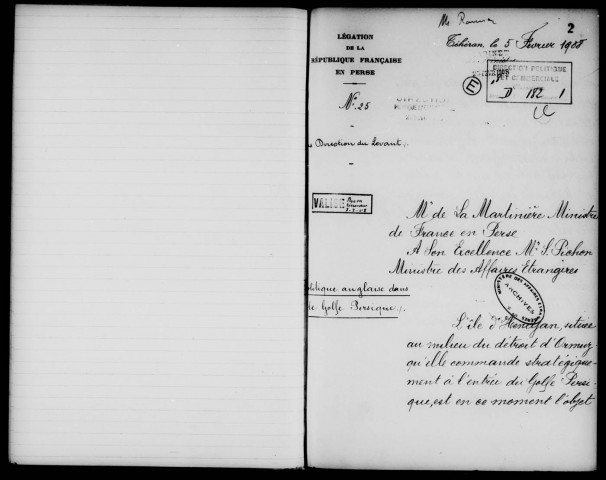 2
LÉGATION
DE LA
RÉPUBLIQUE FRANÇAISE
EN PERSE
Téhéran, le 5 Février 1908
DIRECTION POLITIQUE
ET COMMERCIALE
D 182 1
E
N° 25
Direction du Levant
VALISE
Mr de La Martinière Ministre
de France en Perse
A Son Excellence Mr S. Pichon
Ministre des Affaires Etrangères
litique anglaise dans
le Golfe Persique.
MINISTÈRE DES AFFAIRES ETRANGÈRES
ARCHIVES
L'île d'Hendjan, située
au milieu du détroit d'Ormuz
qu'elle commande stratégique-
ment à l'entrée du Golfe Persi-
que, est en ce moment l'objet